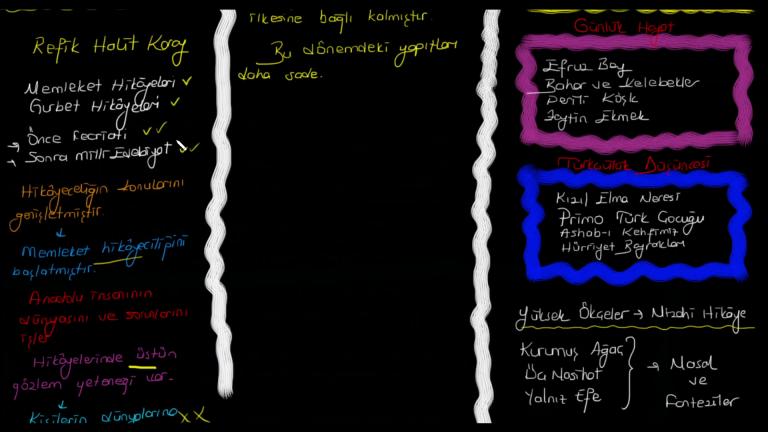 Refik Halit Karay
Memleket Hikâyeleri
Gurbet Hikâyeleri
→ Önce Fecriati
→ Sonra Milli Edebiyat
Hikâyeciliğin konularını
genişletmiştir.
Memleket hikâyeciliğini
başlatmıştır.
Anadolu insanının
dünyasını ve sorunlarını
işler
Hikâyelerinde üstün
gözlem yeteneği var.
Kişilerin dünyalarına
ilkesine bağlı kalmıştır.
Bu dönemdeki yapıtları
daha sade.
Günlük Hayat
Efruz Bey
Bahar ve Kelebekler
Perili Köşk
Zeytin Ekmek
Türkçülük Düşüncesi
Kızıl Elma Neresi
Primo Türk Çocuğu
Ashab-ı Kehfimiz
Hürriyet Bayrakları
Yüksek Ökçeler → Mizahi Hikâye
Kurumuş Ağaç
Üç Nasihat
Yalnız Efe
→ Masal
ve
Fanteziler